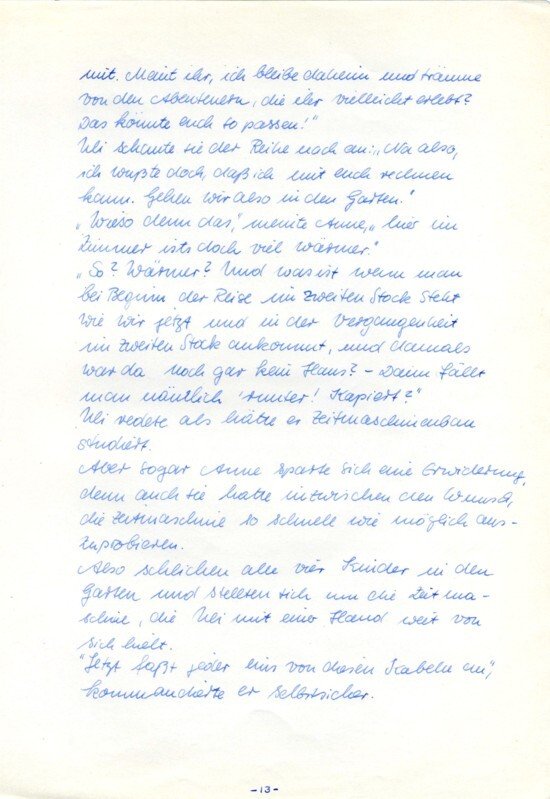 mit. Meint ihr, ich bleibe daheim und träume
von den Abenteuern, die ihr vielleicht erlebt?
Das könnte euch so passen!"
Uli schaute sie der Reihe nach an: „Na also,
ich wußte doch, daß ich mit euch rechnen
kann. Gehen wir also in den Garten."
„Wieso denn das", meinte Anne, „hier im
Zimmer ists doch viel wärmer."
„So? Wärmer? Und was ist wenn man
bei Beginn der Reise im zweiten Stock steht
wie wir jetzt und in der Vergangenheit
im zweiten Stock ankommt, und damals
war da noch gar kein Haus? - Dann fällt
man nämlich 'runter! Kapiert?"
Uli redete als hätte er Zeitmaschinenbau
studiert.
Aber sogar Anne sparte sich eine Erwiderung,
denn auch sie hatte inzwischen den Wunsch,
die Zeitmaschine so schnell wie möglich aus-
zuprobieren.
Also schlichen alle vier Kinder in den
Garten und stellten sich um die Zeitma-
schine, die Uli mit einer Hand weit von
sich hielt.
"Jetzt faßt jeder eins von diesen Kabeln an",
kommandierte er selbstsicher.
-13-